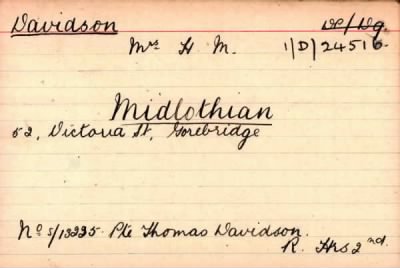 Davidson
Mrs H. M. 1/D/24516.
Midlothian
52, Victoria St, Gorebridge
No S/13225. Pte Thomas Davidson.
R. Hrs 2nd.